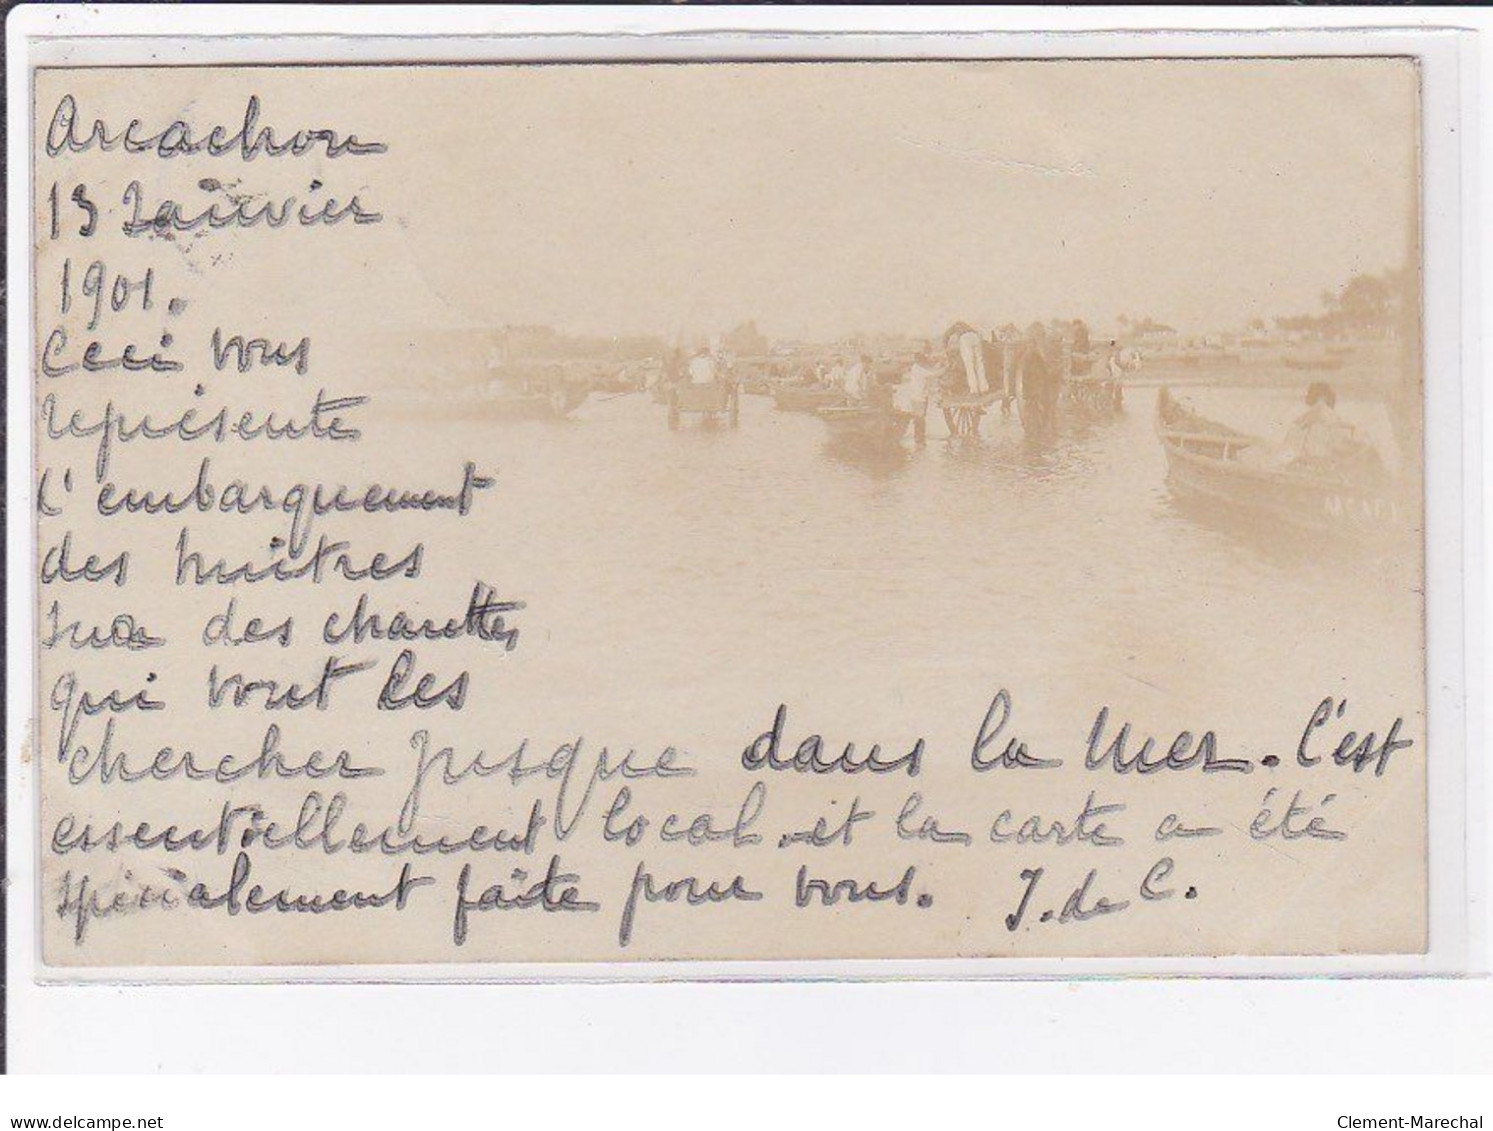 Arcachon
13 Janvier
1901.
Ceci vous
représente
l'embarquement
des huîtres
sur des charettes
qui vont les
chercher jusque dans la Mer. C'est
essentiellement local. et la carte a été
spécialement faîte pour vous. J. de C.
delcampe.net
Clement-Marechal